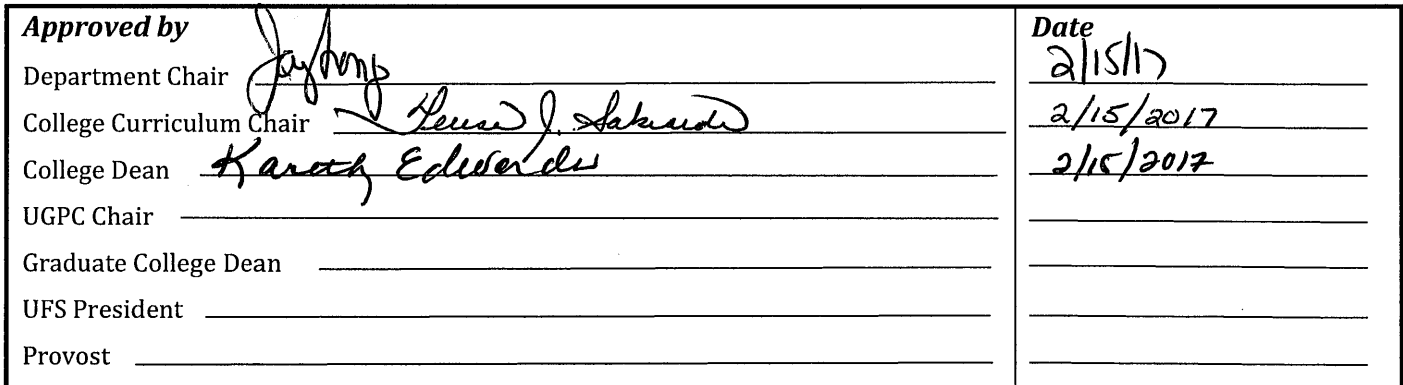 Approved by Date
Department Chair 2/15/17
College Curriculum Chair J. 2/15/2017
College Dean Edwards 2/15/2017
UGPC Chair
Graduate College Dean
UFS President
Provost